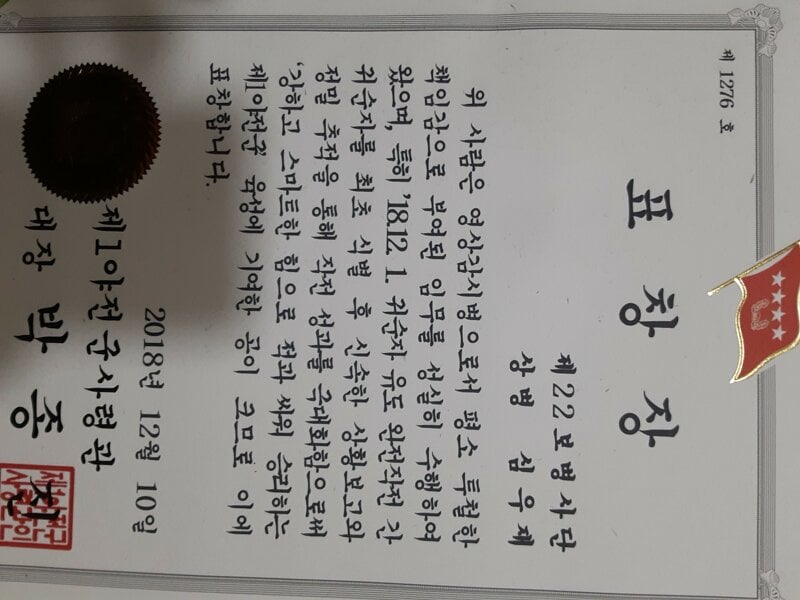 제 1276 호
표 창 장
제22보병사단
상병 심우재
위 사람은 영상감시병으로서 평소 투철한
책임감으로 부여된 임무를 성실히 수행하여
왔으며, 특히 '18.12. 1. 귀순자 유도 완전작전 간
귀순자를 최초 식별 후 신속한 상황보고와
정밀 추적을 통해 작전 성과를 극대화함으로써
'강하고 스마트한 힘으로 적과 싸워 승리하는
제1야전군' 육성에 기여한 공이 크므로 이에
표창합니다.
2018년 12월 10일
제1야전군사령관
대장 박 종 진